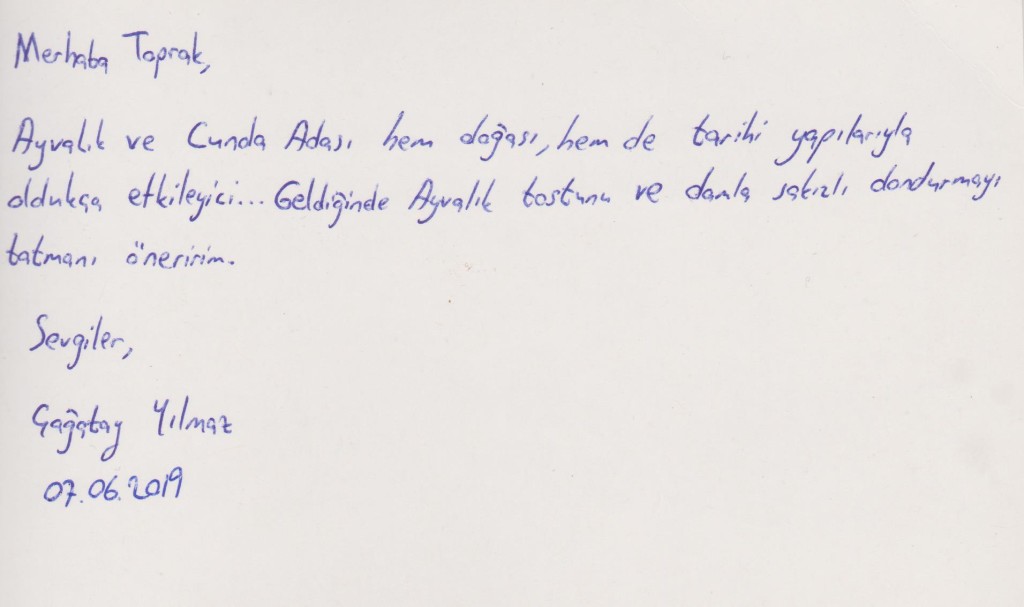 Merhaba Toprak,
Ayvalık ve Cunda Adası hem doğası, hem de tarihi yapılarıyla
oldukça etkileyici... Geldiğinde Ayvalık tostunu ve damla sakızlı dondurmayı
tatmanı öneririm.
Sevgiler,
Çağatay Yılmaz
07.06.2019